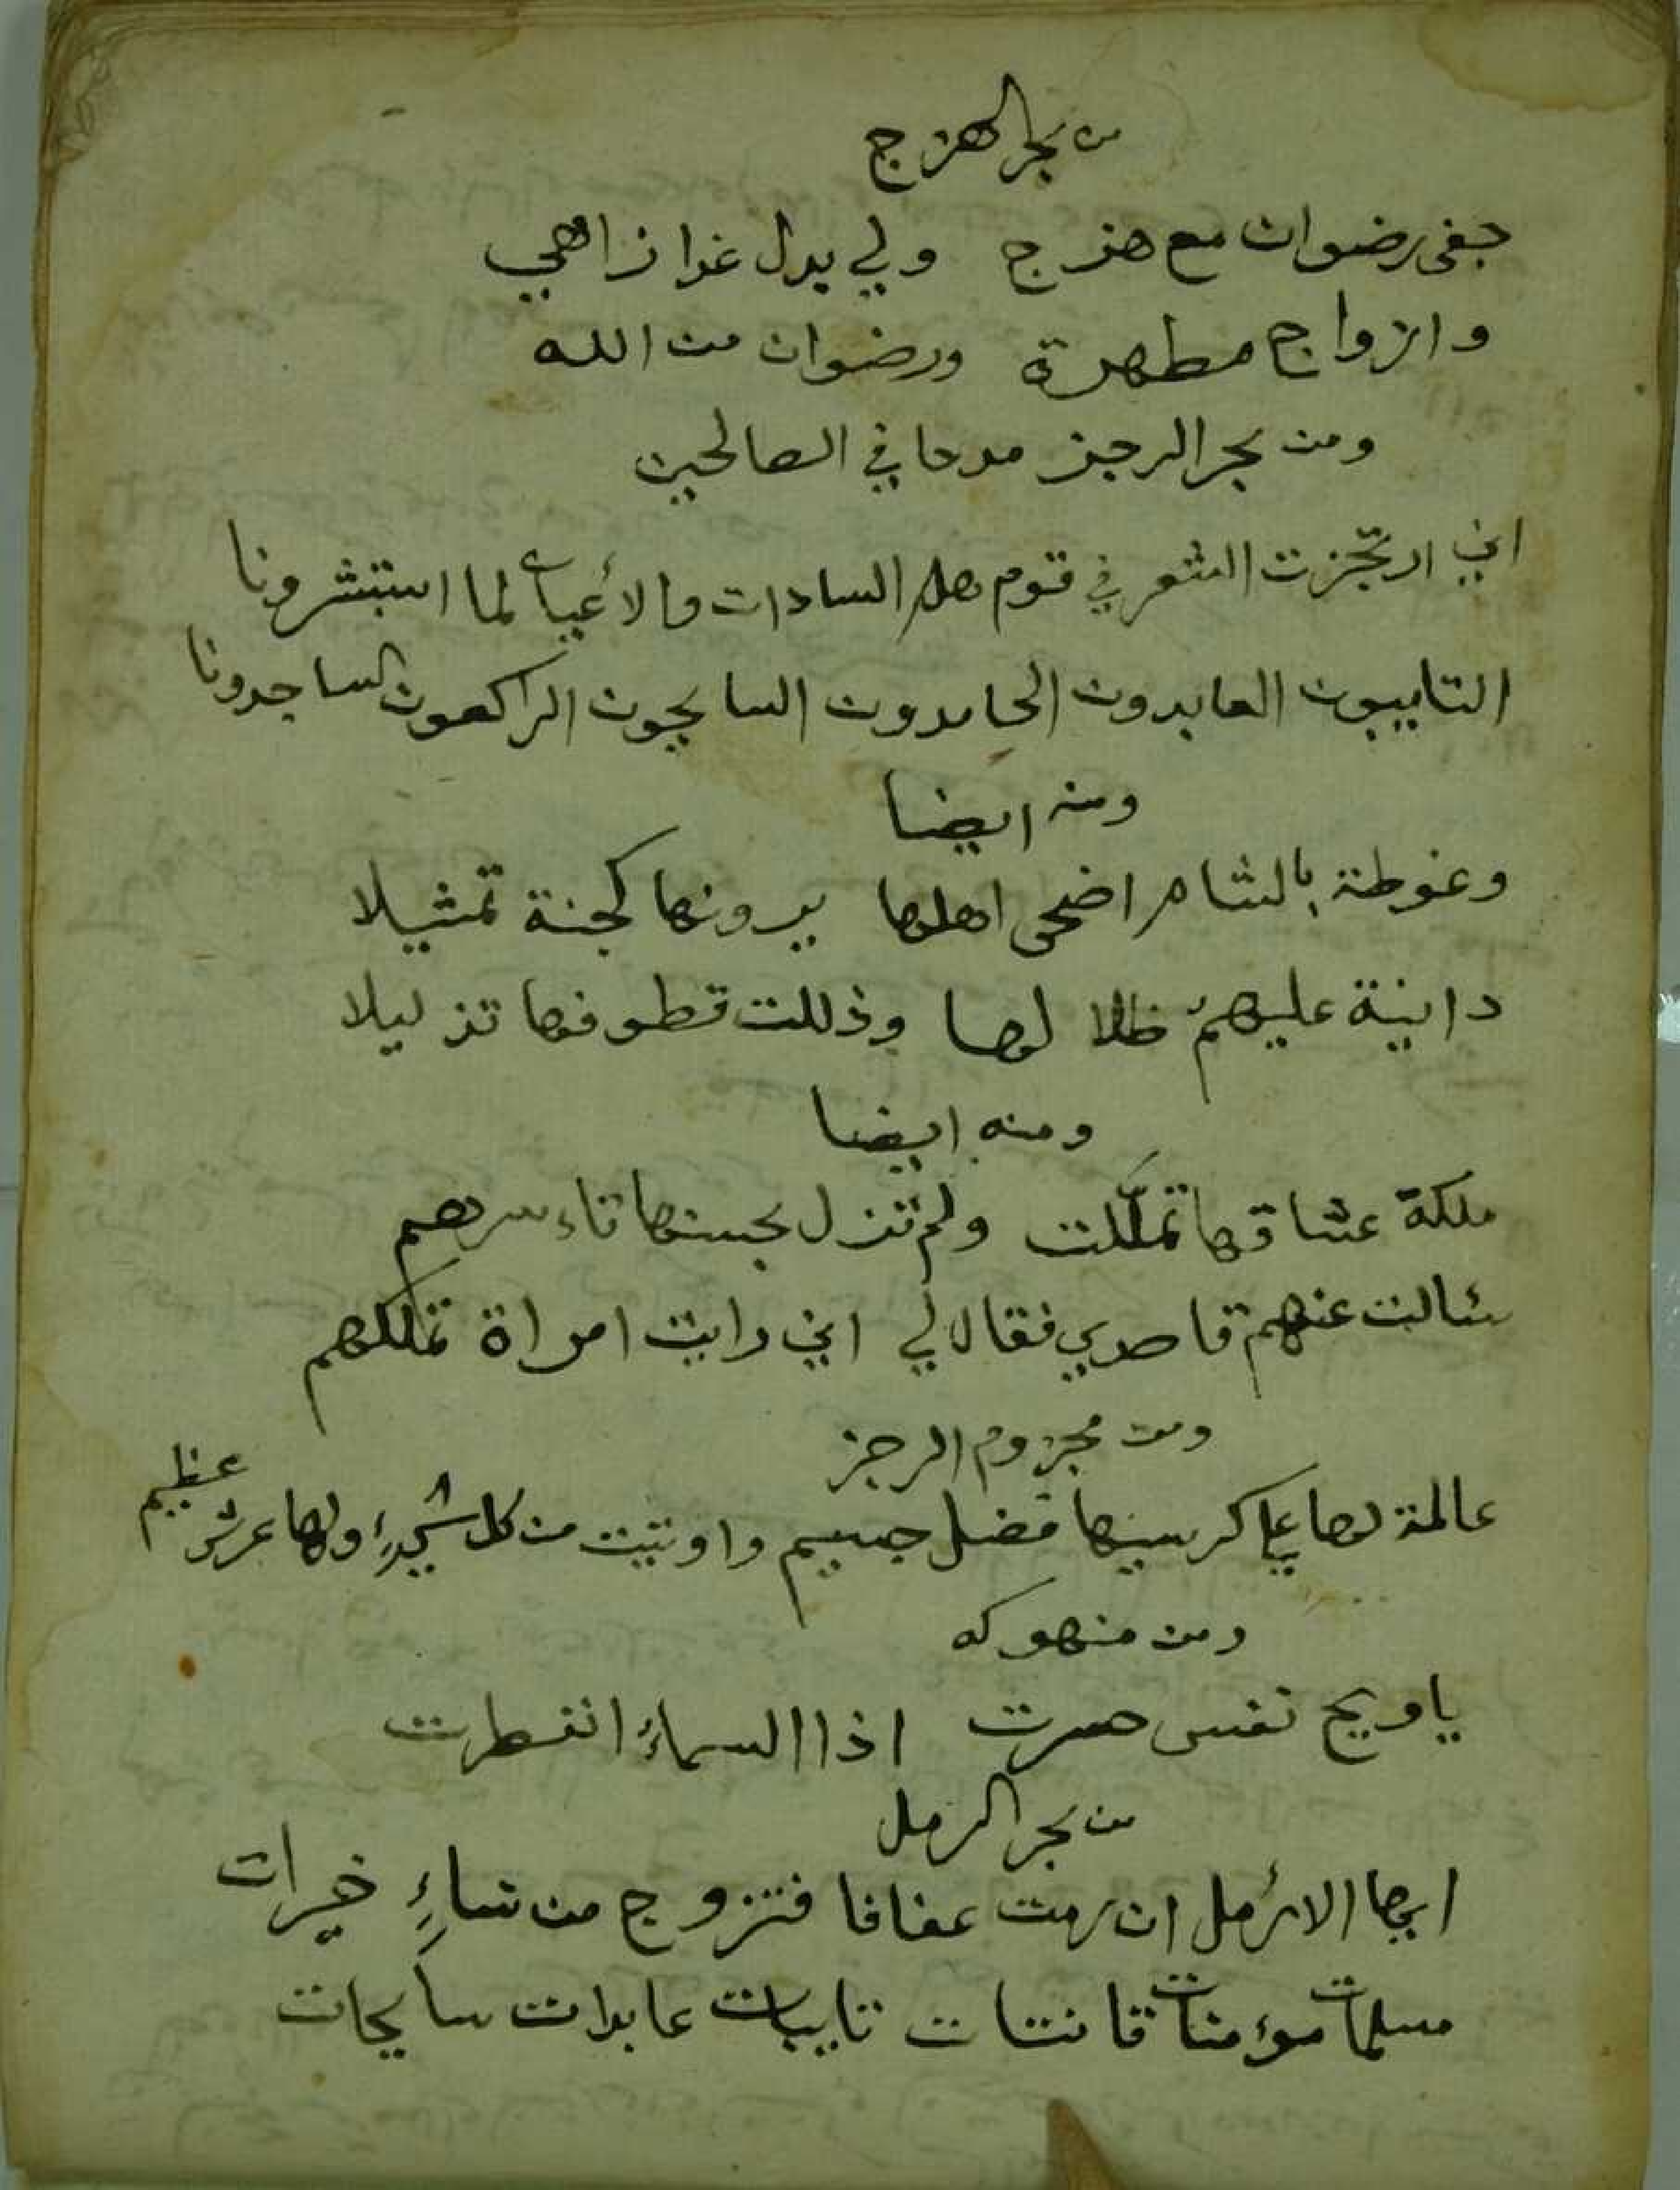 من بحر الهزج
جفى رضوان مع هزج ولي بدل غدا زاهي
وازواج مطهرة ورضوان من الله
ومن بحر الرجز مدحا في الصالحين
اني ارتجزت الشعر في قوم هم السادات والأعيان لما استبشرونا
التايبون العابدون الحامدون السايحون الراكعون الساجدونا
ومنه ايضا
وغوطة بالشام اضحى اهلها يرونها كجنة تمثيلا
دانية عليهم ظلالها وذللت قطوفها تذليلا
ومنه ايضا
ملكة عشاقها تملكت ولم تزل بحسنها تاءسرهم
سئالت عنهم قاصدي فقال لي اني رايت امراة تملكهم
ومن مجزوم الرجز
عالمة لها على كرسيها فضل جسيم واوتيت من كل شيءٍ ولها عرش عظيم
ومن منهوكه
ياويح نفس حسرت اذا السماءُ انفطرت
من بحر الرمل
ايها الارمل ان رمت عفافا فتزوج من نساءٍ خيرات
مسلمات موءمنات قانتات تايبات عابدات سايحات